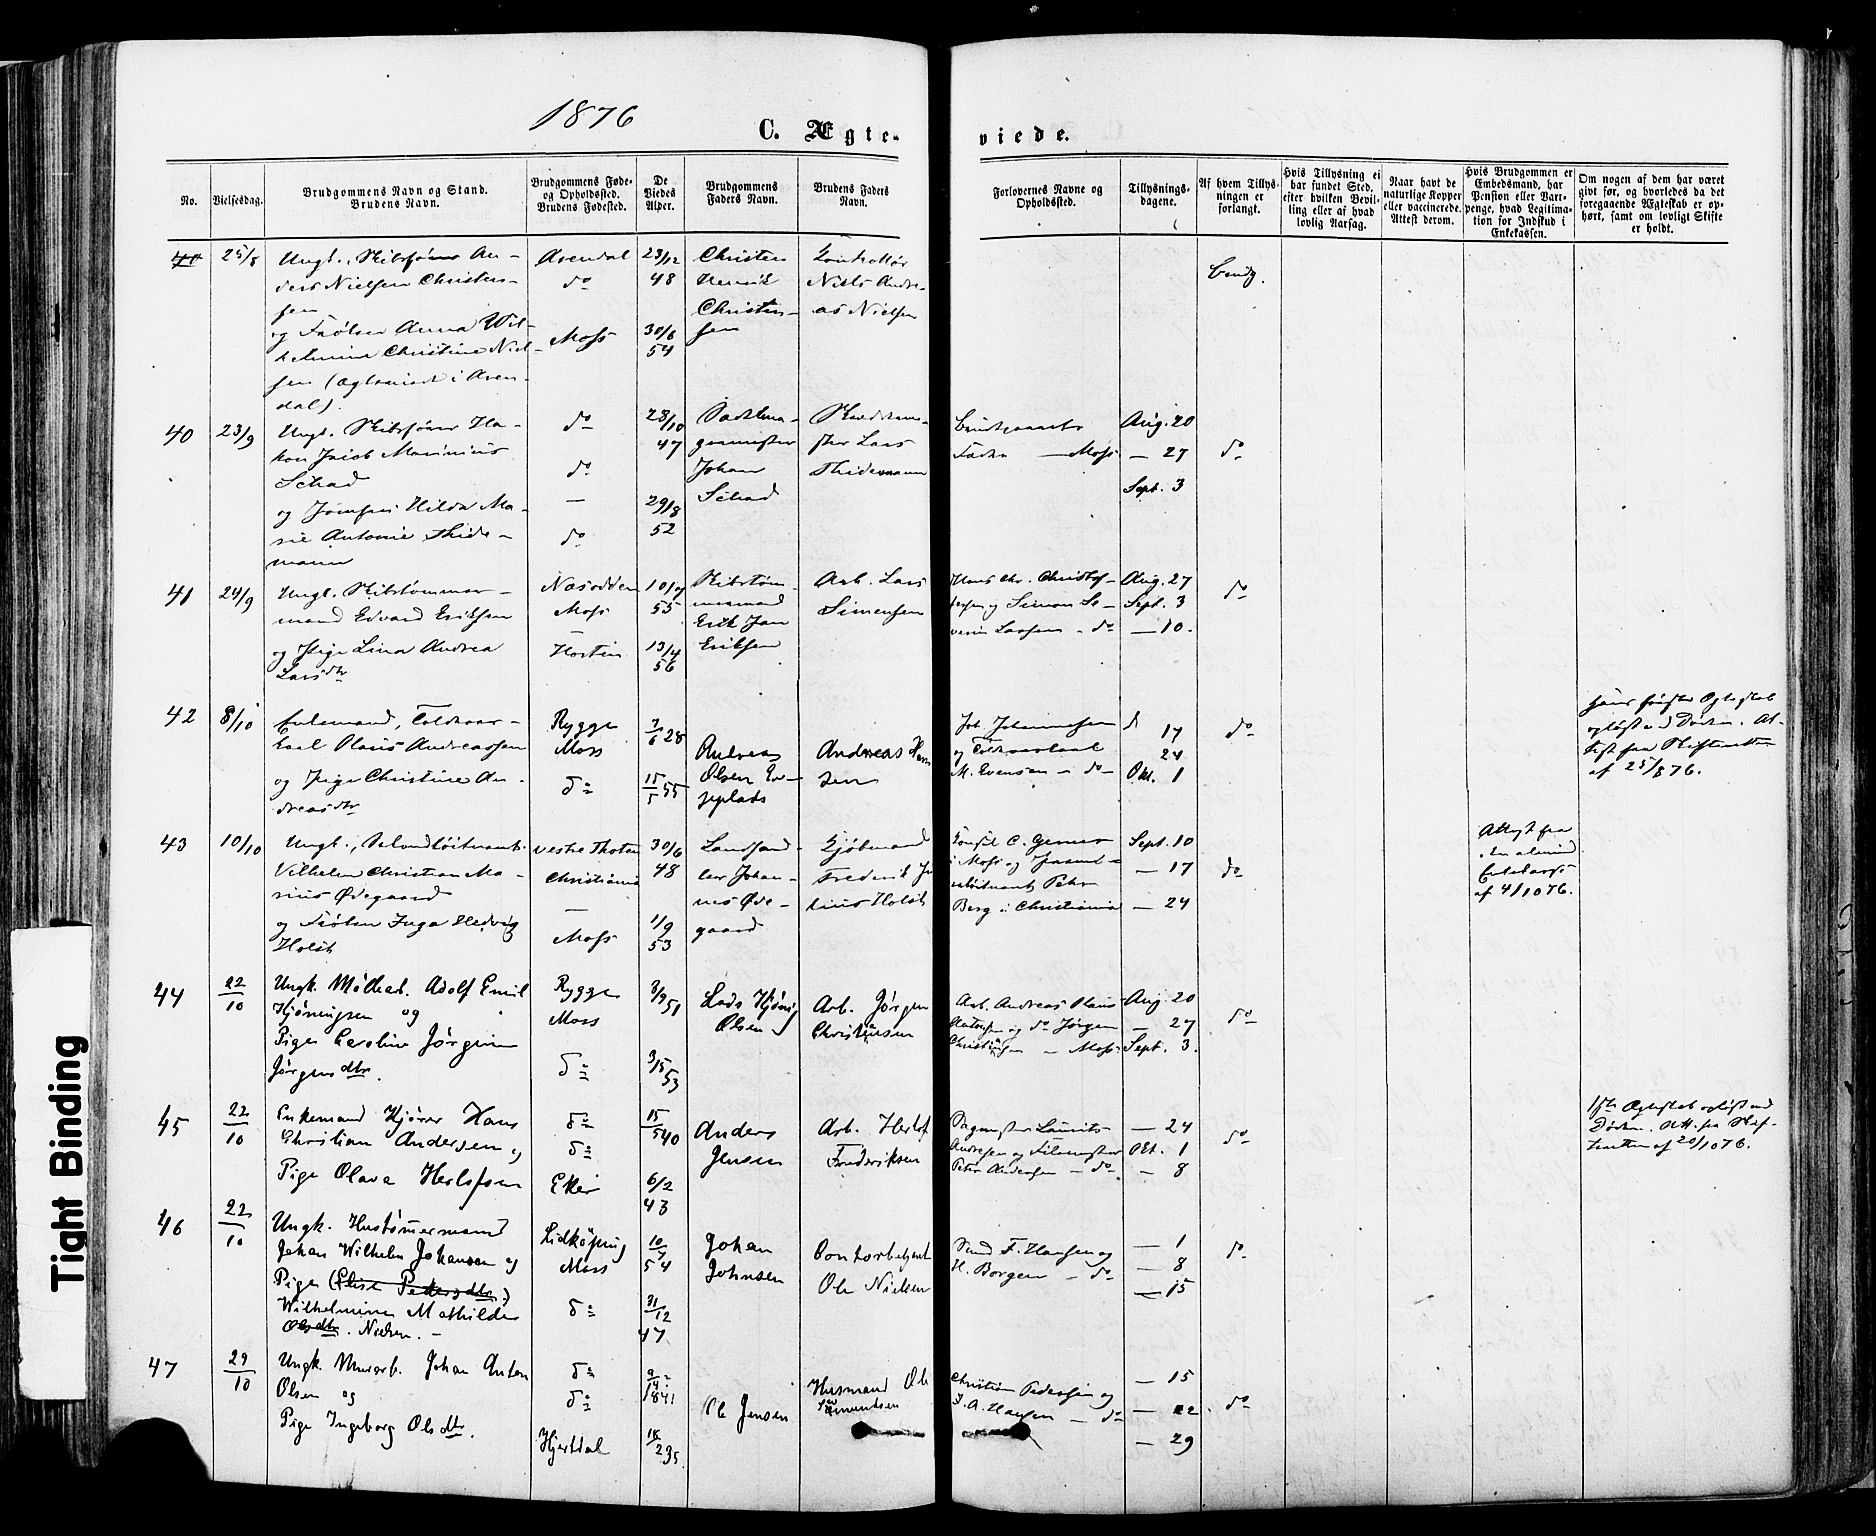 1876
C. Ægte-
viede.
No.
Vielsesdag.
Brudgommens Navn og Stand.
Brudens Navn.
Brudgommens Føde-
og Opholdssted.
Brudens Fødested.
De
Viedes
Alper.
Brudgommens
Faders Navn.
Brudens Faders
Navn.
Forlovernes Navne og
Opholdssted.
Tillysnings-
dagene.
Af hvem Tillys-
ningen er
forlangt.
Hvis Tillysning ei
har fundet Sted,
efter hvilken Bevil-
ling eller af hvad
lovlig Aarsag.
Naar havt de
naturlige Kopper
eller vaccinerede.
Attest derom.
Hvis Brudgommen er
Embedsmand, har
Pension eller Vart-
penge, hvad Legitima-
tion for Indskud i
Enkekassen.
Om nogen af dem har været
givt før, og hvorledes da det
foregaaende Ægteskab er op-
hørt, samt om lovligt Skifte
er holdt.
40
25/8
Ungk. Skibsfører An-
ders Nielsen Christen-
sen
og Frøken Anna Wil-
helmine Christine Niel-
sen (ægteviet i Aren-
dal).
Arendal
do
Moss
23/12
48
30/6
54
Christen
Henrik
Christen-
sen
Kontrollør
Niels Andre-
as Nielsen
Brudg.
40
23/9
Ungk. Skibsfører Ha-
kon Jacob Marinius
Schad
og Jomfru Hilda Ma-
rie Antonie Thide-
mann
do
do
—
do
28/10
47
29/8
52
Sadelma-
germester
Johan
Schad
Lars
Thidemann
Brudgommens
Fader — Moss
Aug. 20
— 27
Sept. 3
do
41
24/9
Ungk. Skibstømmer-
mand Edvard Eriksen
og Pige Lina Andrea
Larsdtr
Næsodden
Moss
Horten
10/7
55
13/4
56
Skibstøm-
mermand
Erik Jan
Eriksen
Arb. Lars
Simensen
Hans Chr. Christof-
fersen og Simon Se-
verin Larsen - do
Aug. 27
Sept. 3
— 10.
do
42
8/10
Enkemand, Toldvar-
Karl Olaus Andreassen
og Pige Christine An-
dreasdtr
Rygge
Moss
do
7/6 28
15/5 55
Andreas
Olsen Ep-
peplads
Andreas Han
sen
Joh. Johannessen
og Toldvarskarl
M. Evensen - do -
17
24
Okt. 1
do
Hans første Ægteskab
opløst ved Døden. At-
test fra Skifteretten
af 25/8 76.
43
10/10
Ungk., Sekondløitnant
Vilhelm Christian Ma-
rius Ødegaard
og Frøken Inga Hedvig
Holst
vestre Thoten
Christiania
—
Moss
30/6
48
1/9
53
Landhand-
ler Johan-
nes Øde-
gaard
Kjøbmand
Frederik Ju
lius Holst
Konsul C. Gerner
i Moss og Premier-
løitnant Peter
Berg i Christiania
Sept. 10
— 17
— 24
do
Attest fra
den almind
Enkekasse
af 4/10 76.
44
22/10
Ungk. Møllearb. Adolf Emil
Hjøningsen og
Pige Caroline Jørgine
Jørgensdtr.
Rygge
Moss
do
3/9 51
3/15 53
Lads Hjøning
Olsen
Arb. Jørgen
Christensen
Arb. Andreas Olaus
og do Jørgen
Christensen — Moss
Aug 20
— 27
Sept. 3.
do
45
22/10
Enkemand Kjører Hans
Christian Andersen og
Pige Olava Herlofsen
do
do
Eker
15/5 40
6/2
43
Anders
Jensen
Arb. Herlof
Frederiksen
Pagmester Laurits
Andresen og Filemester
Peter Andersen - do -
— 24
Okt. 1
— 8
do
1ste Ægteskab opløst ved
Døden. Att. fra Skif-
teretten af 20/10 76.
46
22/10
Ungk. Hustømmermand
Johan Wilhelm Johansen og
Pige (Elise Pedersdtr.)
Wilhelmine Mathilde
Olsdtr. Nielsen. —
Lidköping
Moss
do
10/7
54
31/12
47
Johan
Johnsen
Contorbetjent
Ole Nielsen
F. Hansen og
H. Borgen - do
— 1
— 8
— 15
do
47
29/10
Ungk. Murarb. Johan Anton
Olsen og
Pige Ingeborg Olsdtr.
do
do
Hjertdal
1841
18/2 35
Ole Jensen
Husmand Ole
Simensen
Christian Pedersen og
I. A. Hansen - do
— 15
— 22
— 29
do
Tight Binding